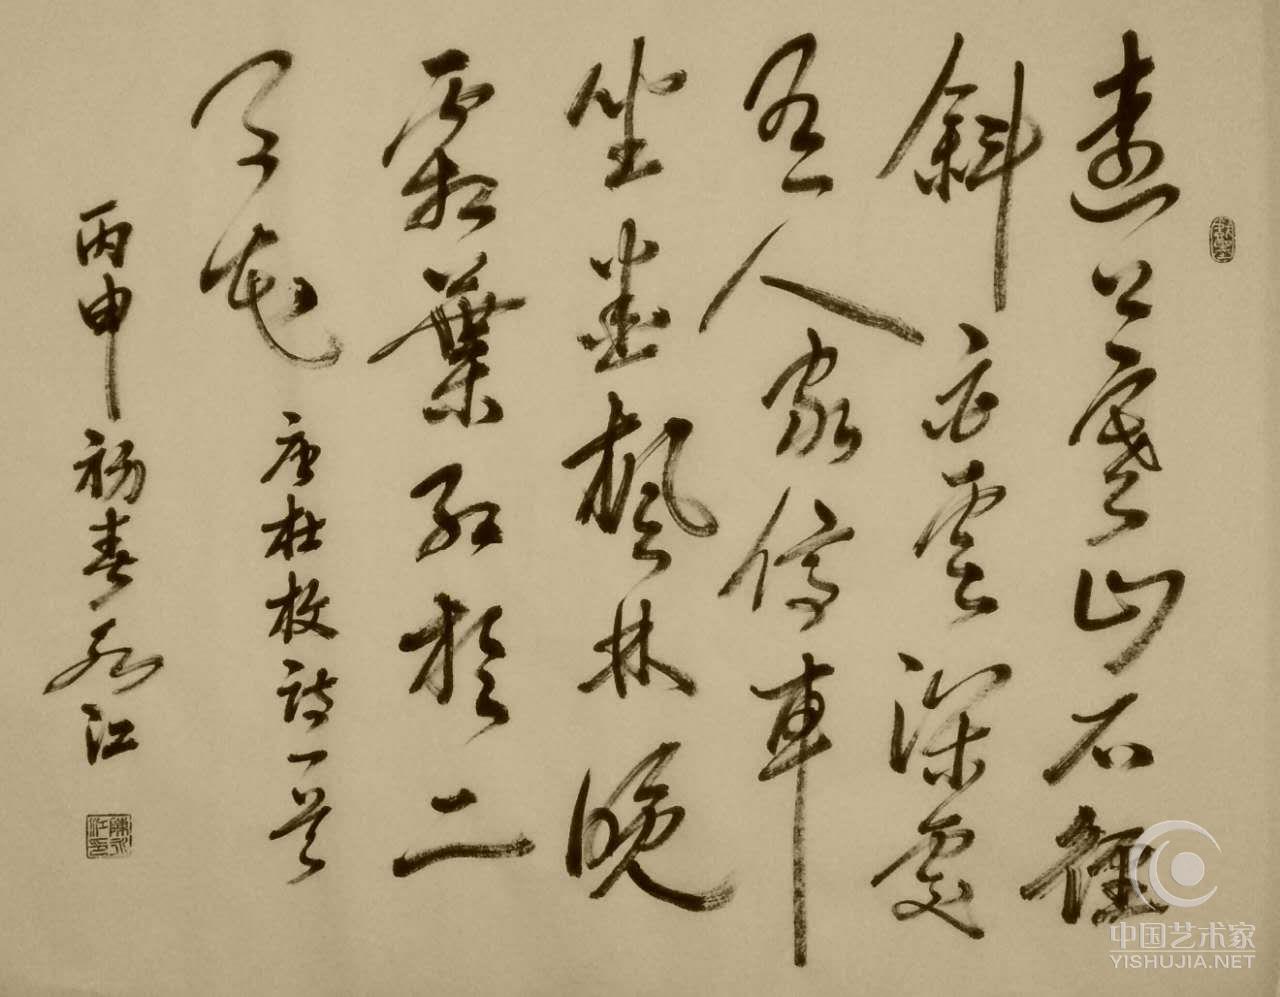 遠上寒山石徑
斜白雲深處
有人家停車
坐愛楓林晚
霜葉紅於二
月花
唐杜牧詩一首
丙申初春永江
陳永江印
中国艺术家
YISHUJIA.NET